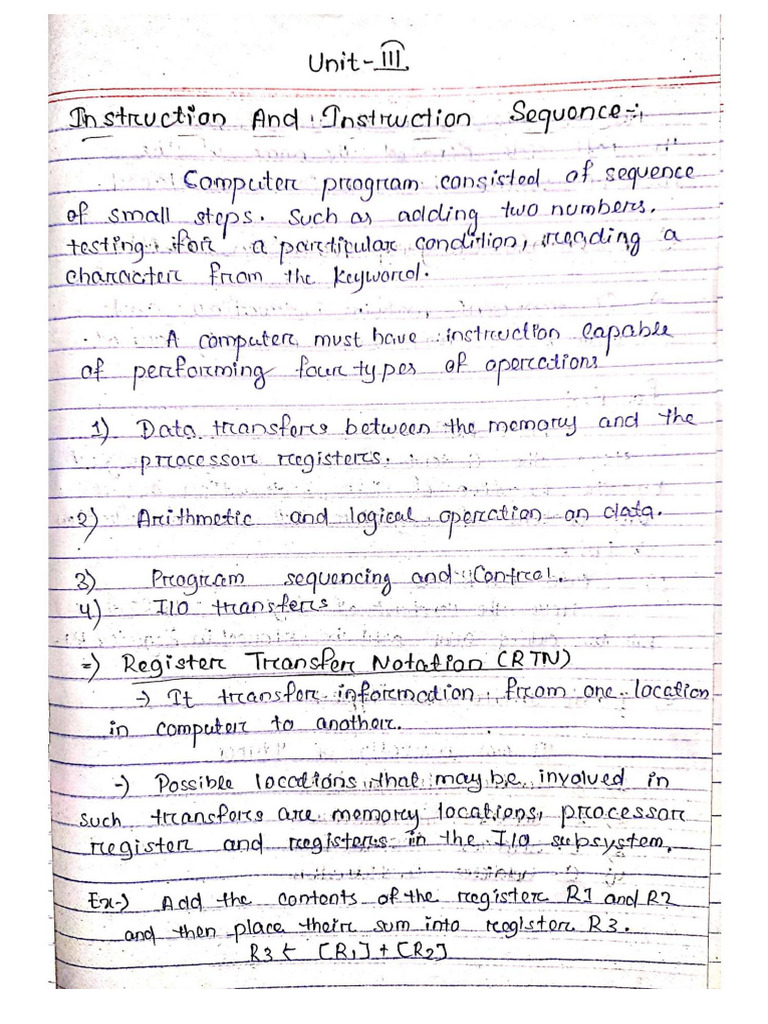 Unit-III
Instruction And Instruction Sequence:-
Computer program consisted of sequence
of small steps. Such as adding two numbers.
testing for a particular condition, reading a
character from the keyword.
A computer must have instruction capable
of performing four types of operations
1) Data transfers between the memory and the
processor registers.
2) Arithmetic and logical operation on data.
3) Program sequencing and Control.
4) I/O transfers
=) Register Transfer Notation (RTN)
-) It transfer information from one location
in computer to another.
-) Possible locations that may be involved in
such transfers are memory locations, processor
register and registers in the I/O subsystem.
Ex-) Add the contents of the register R1 and R2
and then place their sum into register R3.
R3 ← [R1] + [R2]